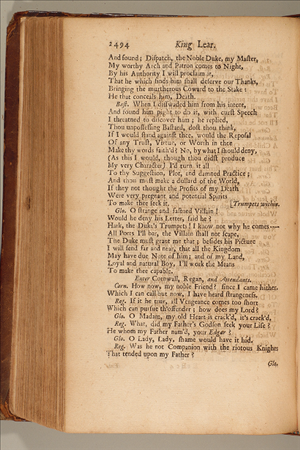 1494 King Lear.
And found; Dispatch, the Noble Duke, my Master,
My worthy Arch and Patron comes to Night,
By his Authority I will proclaim it,
That he which finds him shall deserve our Thanks,
Bringing the murtherous Coward to the Stake:
He that conceals him, Death.
Bast. When I disswaded him from his intent,
And found him pight to do it, with curst Speech
I threatned to discover him; he replied,
Thou unpossessing Bastard, dost thou think,
If I would stand against thee, would the Reposal
Of any Trust, Virtue, or Worth in thee
Make thy words faith'd? No, by what I should deny,
(As this I would, though thou didst produce
My very Character) I'd turn it all
To thy Suggestion, Plot, and damned Practice;
And thou must make a dullard of the World,
If they not thought the Profits of my Death
Were very pregnant and potential Spirits
To make thee seek it. [Trumpets within.
Glo. O strange and fastned Villain!
Would he deny his Letter, said he?
Hark, the Duke's Trumpets! I know not why he comes—
All Ports I'll bar, the Villain shall not scape,
The Duke must grant me that; besides his Picture
I will send far and near, that all the Kingdom
May have due Note of him; and of my Land,
Loyal and natural Boy, I'll work the Means
To make thee capable.
Enter Cornwall, Regan, and Attendants.
Corn. How now, my noble Friend? since I came hither,
Which I can call but now, I have heard strangeness.
Reg. If it be true, all Vengeance comes too short
Which can pursue th'offender; how does my Lord?
Glo. O Madam, my old Heart is crack'd, it's crack'd.
Reg. What, did my Father's Godson seek your Life?
He whom my Father nam'd, your Edgar?
Glo. O Lady, Lady, shame would have it hid.
Reg. Was he not Companion with the riotous Knights
That tended upon my Father?
Glo.